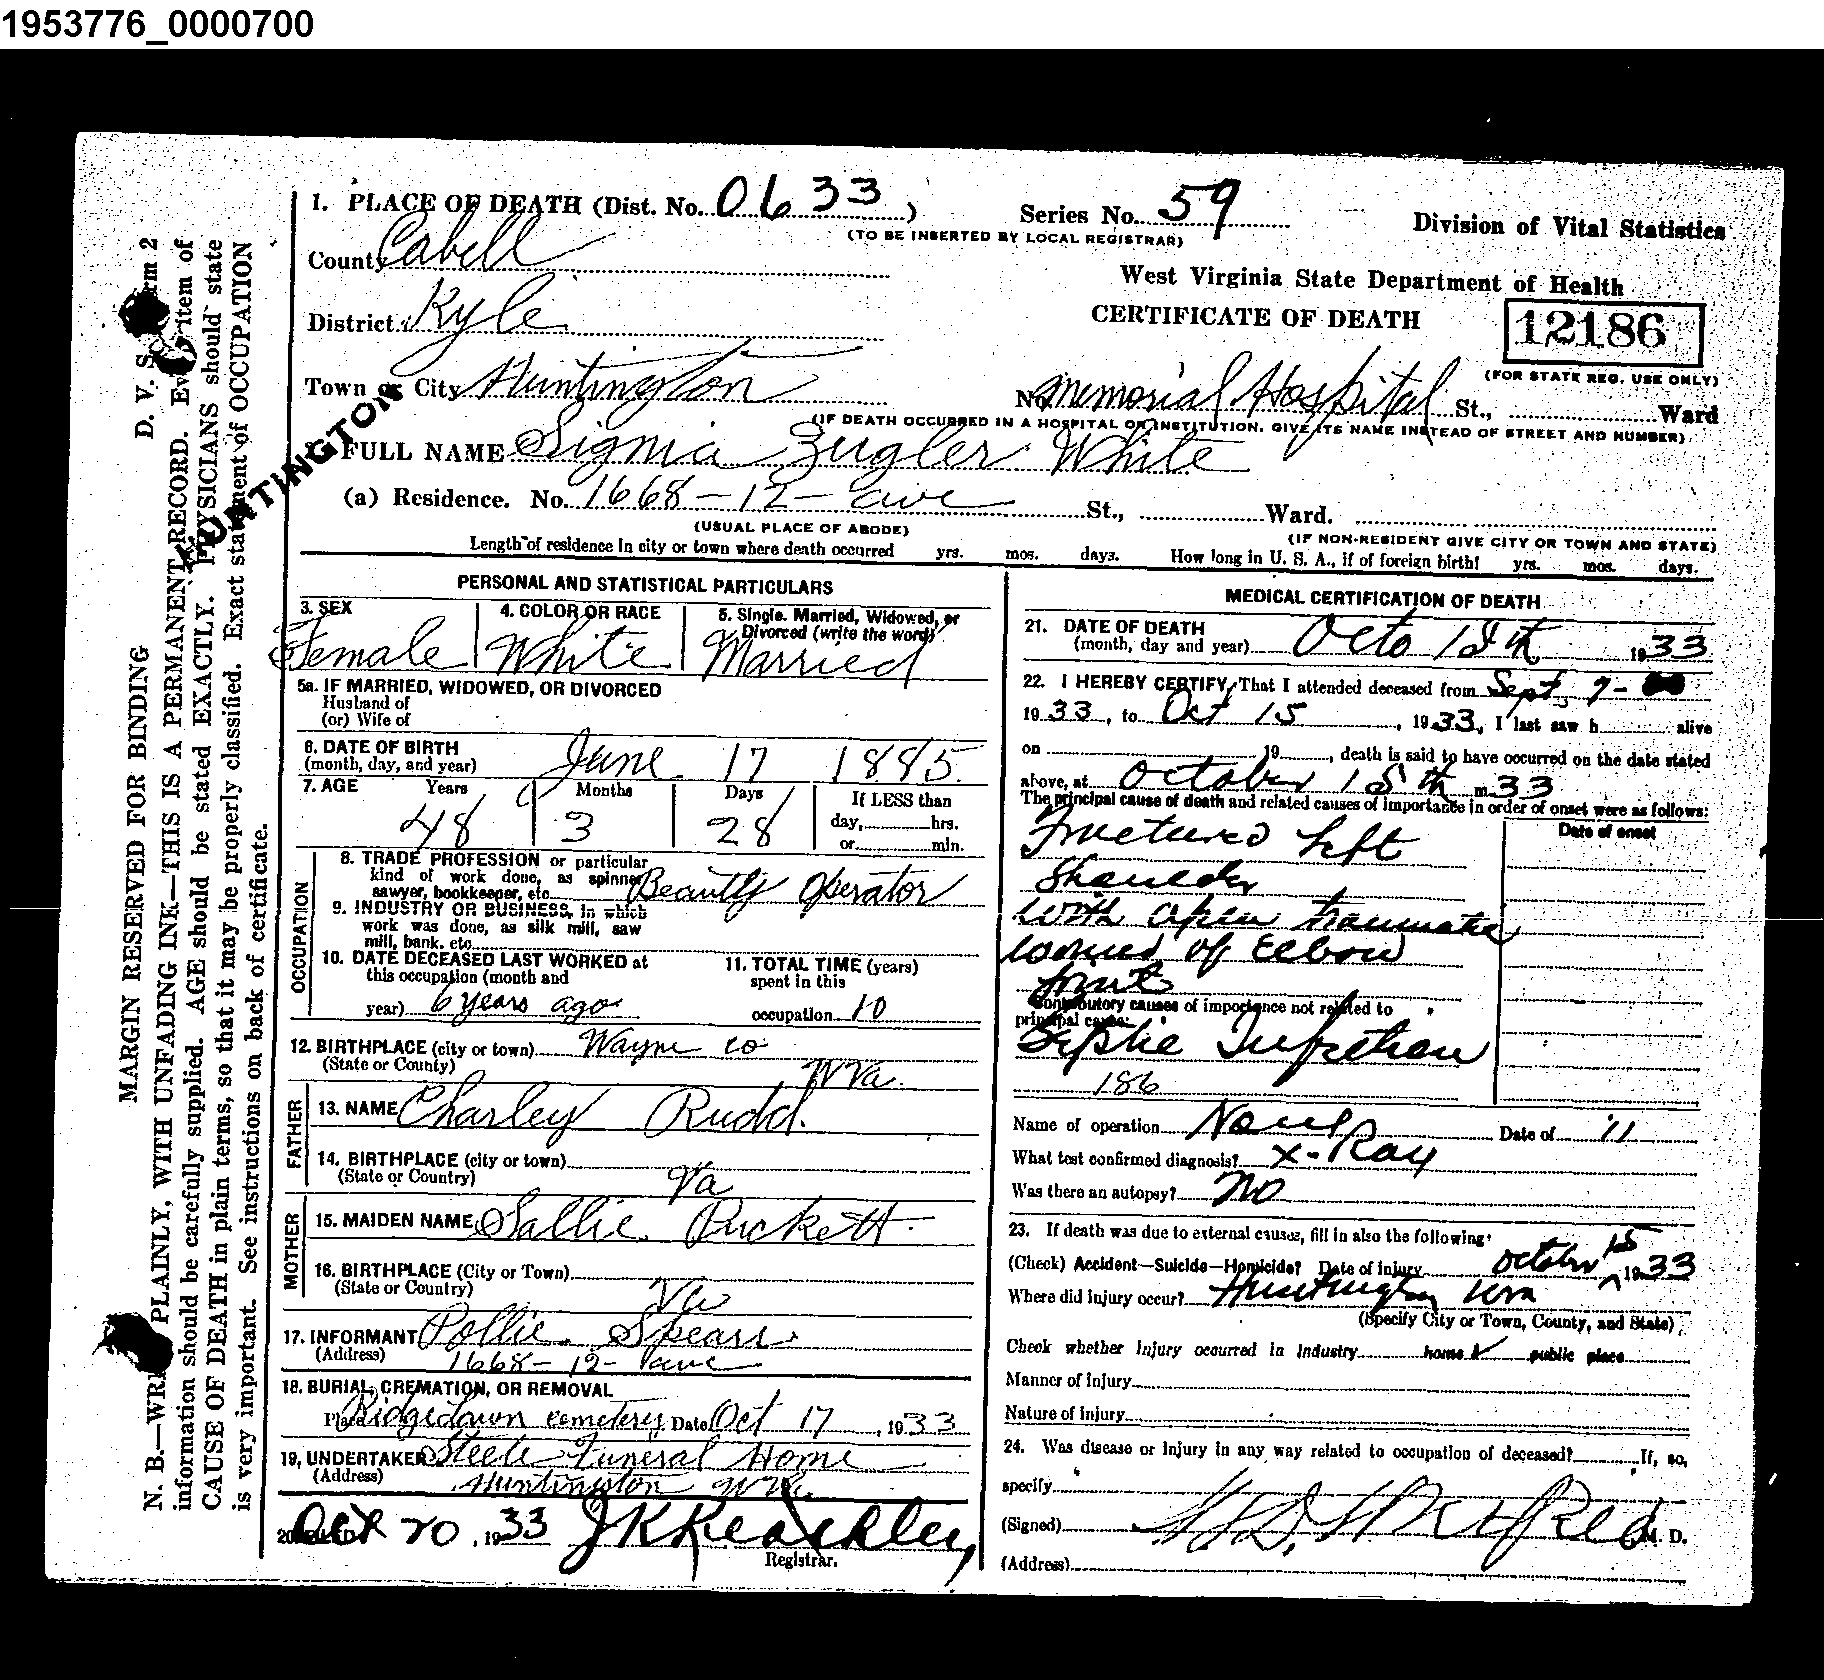 1953776_0000700
1. PLACE OF DEATH (Dist. No. 0633 )
Series No. 59
Division of Vital Statistics
(TO BE INSERTED BY LOCAL REGISTRAR)
County Cabell
West Virginia State Department of Health
District Kyle
CERTIFICATE OF DEATH
12186
(FOR STATE REG. USE ONLY)
Town or City Huntington
No. Memorial Hospital St., Ward
(IF DEATH OCCURRED IN A HOSPITAL OR INSTITUTION, GIVE ITS NAME INSTEAD OF STREET AND NUMBER)
HUNTINGTON
FULL NAME Sigma Zugler White
(a) Residence. No. 1668-12-ave St., Ward.
(USUAL PLACE OF ABODE)
(IF NON-RESIDENT GIVE CITY OR TOWN AND STATE)
Length of residence in city or town where death occurred yrs. mos. days. How long in U. S. A., if of foreign birth? yrs. mos. days.
PERSONAL AND STATISTICAL PARTICULARS
3. SEX
Female
4. COLOR OR RACE
White
5. Single, Married, Widowed, or
Divorced (write the word)
Married
5a. IF MARRIED, WIDOWED, OR DIVORCED
Husband of
(or) Wife of
6. DATE OF BIRTH
(month, day, and year) June 17 1885
7. AGE Years Months Days If LESS than
48 3 28 day, hrs.
or min.
OCCUPATION
8. TRADE PROFESSION or particular
kind of work done, as spinner,
sawyer, bookkeeper, etc. Beauty Operator
9. INDUSTRY OR BUSINESS, in which
work was done, as silk mill, saw
mill, bank, etc.
10. DATE DECEASED LAST WORKED at
this occupation (month and
year) 6 years ago
11. TOTAL TIME (years)
spent in this
occupation 10
12. BIRTHPLACE (city or town) Wayne co
(State or County) W Va.
FATHER
13. NAME Charley Rudd.
14. BIRTHPLACE (city or town)
(State or Country) Va
MOTHER
15. MAIDEN NAME Sallie Puckett
16. BIRTHPLACE (City or Town)
(State or Country) Va
17. INFORMANT Pollie Spears
(Address) 1668-12-ave
18. BURIAL, CREMATION, OR REMOVAL
Place Ridgelawn cemetery Date Oct 17, 1933
19. UNDERTAKER Steele Funeral Home
(Address) Huntington W Va.
20. FILED Oct 20, 1933 J K Keackley
Registrar.
MEDICAL CERTIFICATION OF DEATH
21. DATE OF DEATH
(month, day and year) Octo 15th 1933
22. I HEREBY CERTIFY, That I attended deceased from Sept 7-
1933, to Oct 15, 1933, I last saw h alive
on 19, death is said to have occurred on the date stated
above, at October 15th m. 33
The principal cause of death and related causes of importance in order of onset were as follows:
Date of onset
Fractured Left
Shoulder
with open traumatic
wound of Elbow
Joint
Contributory causes of importance not related to
principal cause:
Septic Infection
186
Name of operation None Date of "
What test confirmed diagnosis? X-Ray
Was there an autopsy? No
23. If death was due to external causes, fill in also the following:
(Check) Accident—Suicide—Homicide? Date of injury October 15 1933
Where did injury occur? Huntington Wva
(Specify City or Town, County, and State)
Check whether injury occurred in industry home ✓ public place
Manner of injury
Nature of injury
24. Was disease or injury in any way related to occupation of deceased? If, so,
specify
(Signed) M. D.
(Address)
D. V. S. Form 2
MARGIN RESERVED FOR BINDING
N. B.—WRITE PLAINLY, WITH UNFADING INK—THIS IS A PERMANENT RECORD. Every item of
information should be carefully supplied. AGE should be stated EXACTLY. PHYSICIANS should state
CAUSE OF DEATH in plain terms, so that it may be properly classified. Exact statement of OCCUPATION
is very important. See instructions on back of certificate.